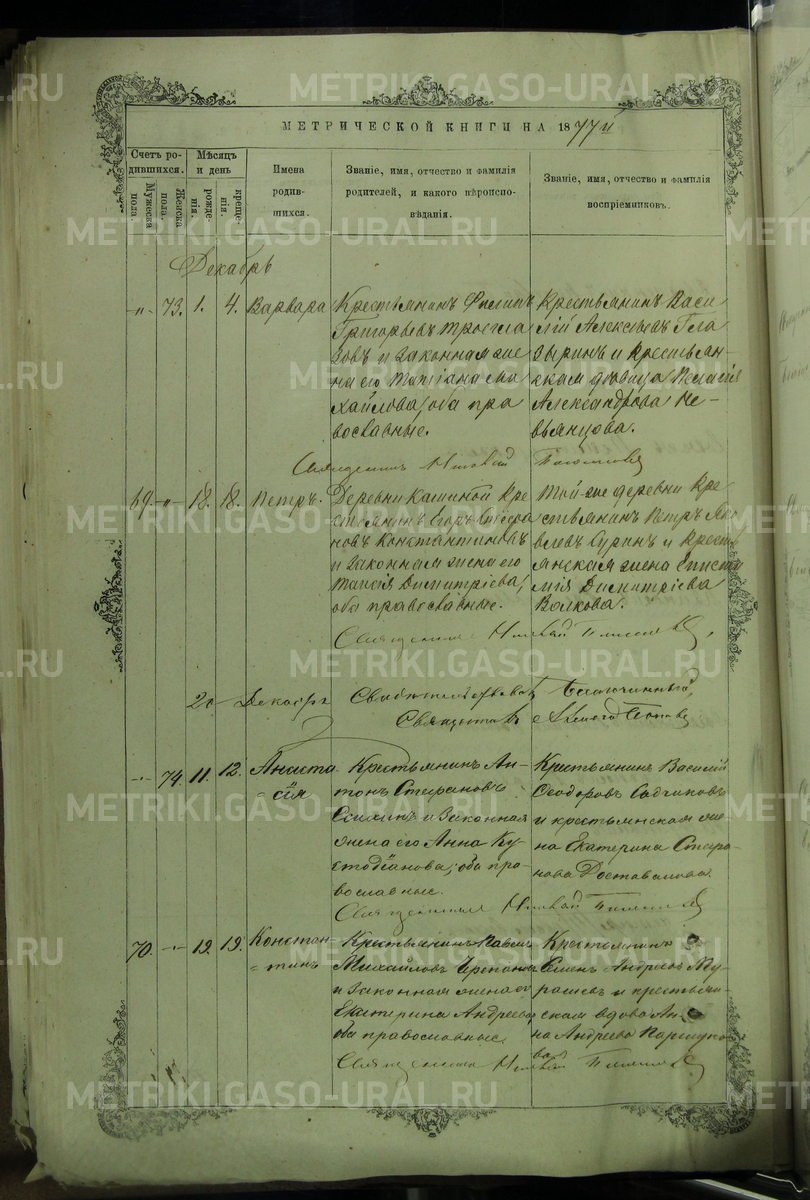 METRIKI.GASO-URAL.RU
МЕТРИЧЕСКОЙ КНИГИ НА 1877й
Счетъ родившихся.
Мужеска пола.
Женска пола.
Мѣсяцъ и день
рожденія.
крещенія.
Имена родившихся.
Званіе, имя, отчество и фамилія родителей, и какого вѣроисповѣданія.
Званіе, имя, отчество и фамилія воспріемниковъ.
Декабрь
-"- 73. 1. 4. Варвара
Крестьянинъ Филипъ
Григорьевъ
и законная же
на его Татіана Ми
хайлова, оба пра
вославные.
Крестьянинъ Васи
лій Алексѣевъ Гла
зыринъ и крестьян
ская дѣвица Пелагія
Александрова Не-
вьянцова.
Священникъ
69. -"- 18. 18. Петръ.
Деревни Калиной кре
стьянинъ Егоръ Стефа
новъ Константиновъ
и законная жена его
Таисія Димитріева,
оба православные.
Той-же деревни кре
стьянинъ Петръ Яко
влевъ Суринъ и кресть
янская жена Еписта
мія Димитріева
Волкова.
Священникъ
20 Декабря Свидѣтельствовалъ Благочинный,
Священникъ
-"- 74. 11. 12. Анаста
=сія
Крестьянинъ Ан-
тонъ Стефановъ
и законная
жена его Анна Ку
стодіанова, оба пра-
вославные.
Крестьянинъ Василій
Ѳеодоровъ Садчиковъ
и крестьянская же
на Екатерина Стефа
нова Доставалова
Священникъ
70. -"- 19. 19. Констан
=тинъ
Крестьянинъ Павелъ
Михайловъ Черепановъ
и законная жена его
Екатерина Андреева,
оба православные.
Крестьянинъ
Семенъ Андреевъ Му
рашевъ и крестьян
ская вдова Ан-
на Андреева Паршуко
ва.
Священникъ